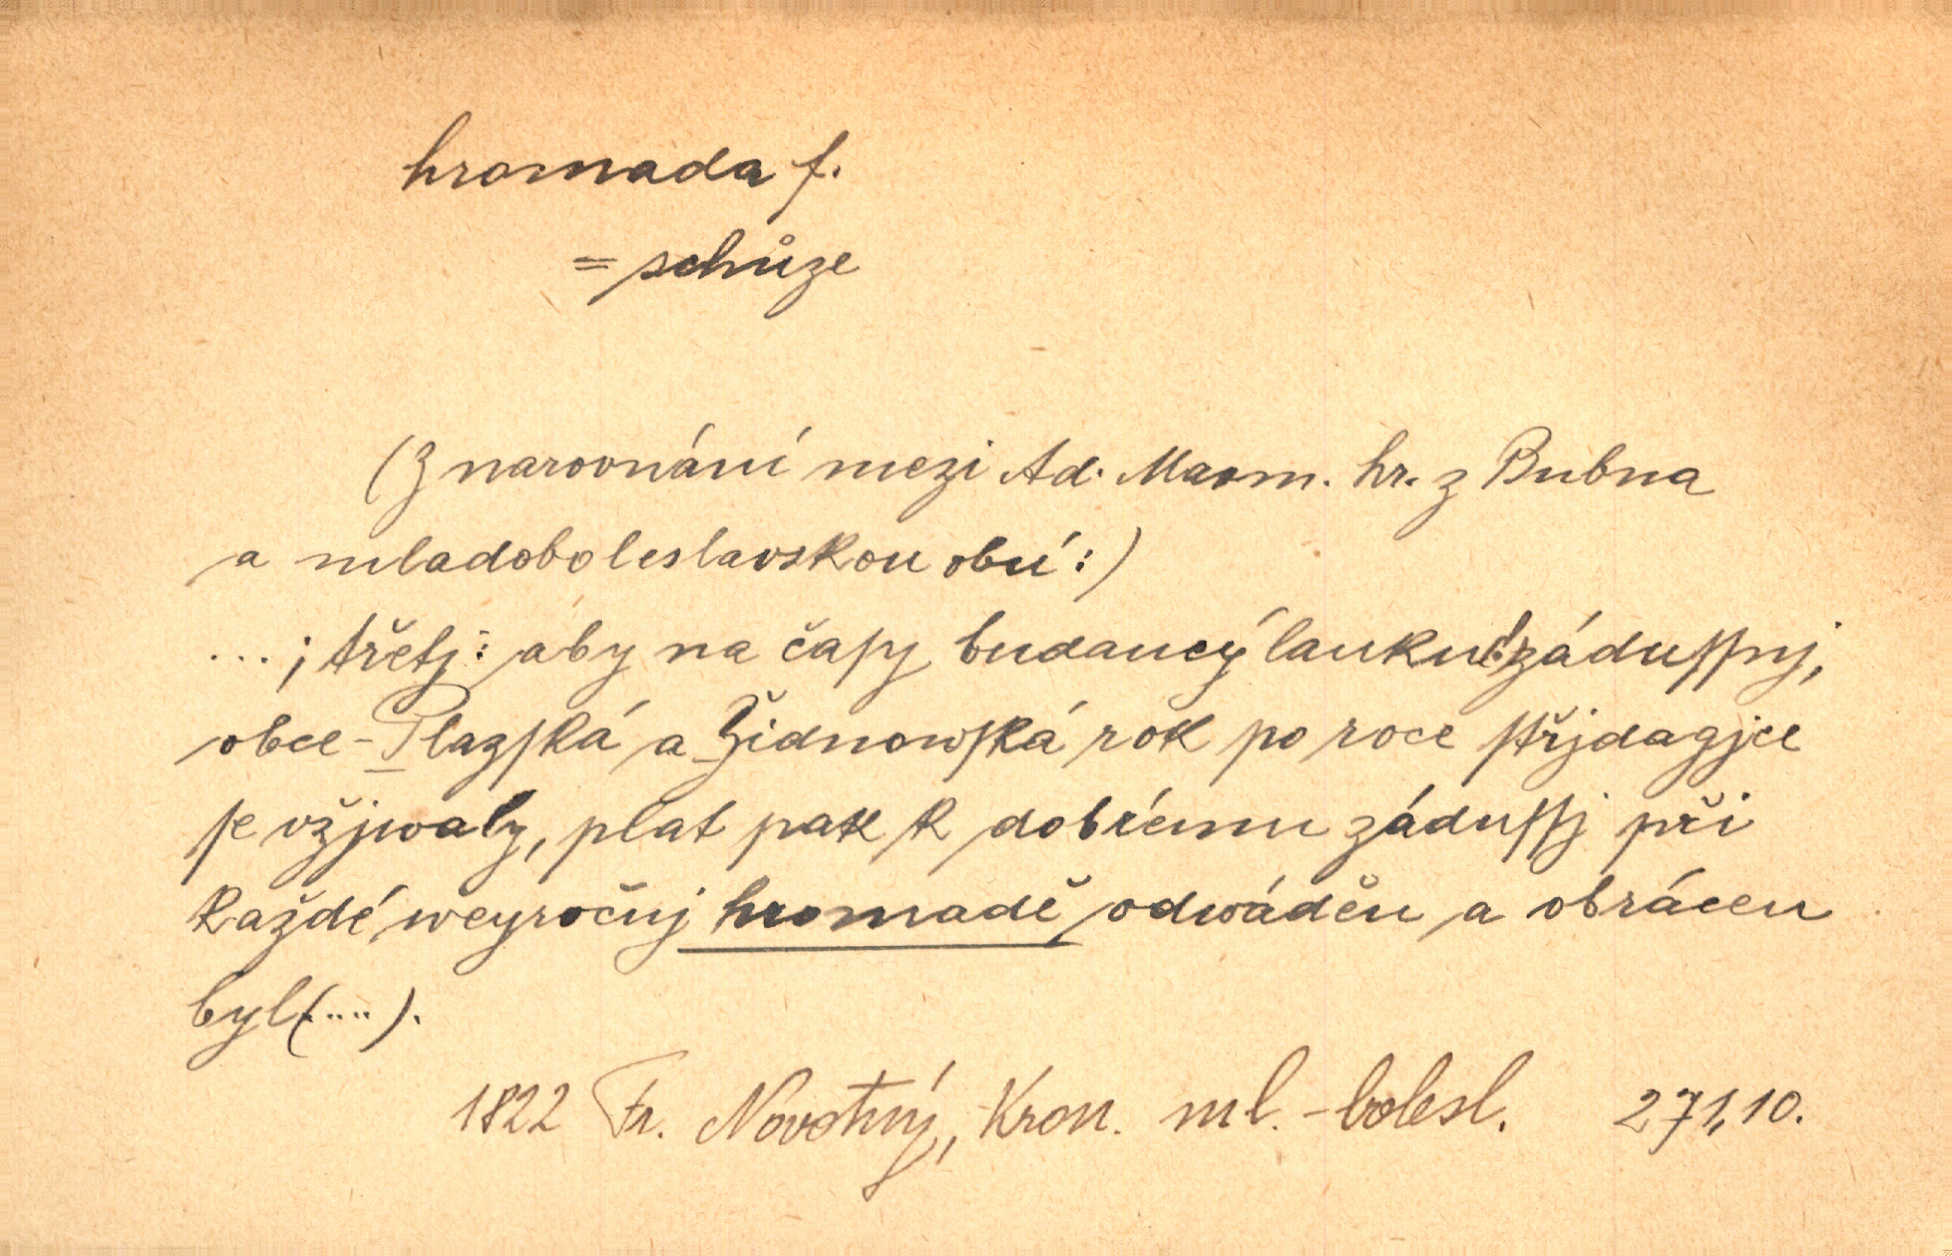 hromada f.
= schůze
(Z narovnání mezi Ad. Maxm. hr. z Bubna
a mladoboleslavskou obcí:)
...; třetj: aby na čaſy budaucý lauku záduſſnj,
obce Plazſká a Židnowſká rok po roce ſtřjdagjce
ſe vžjwaly, plat pak k dobrému záduſſj při
každé weyročnj hromadě odwáděn a obrácen
byl (....).
1822 Fr. Novotný, Kron. ml.-bolesl. 271,10.